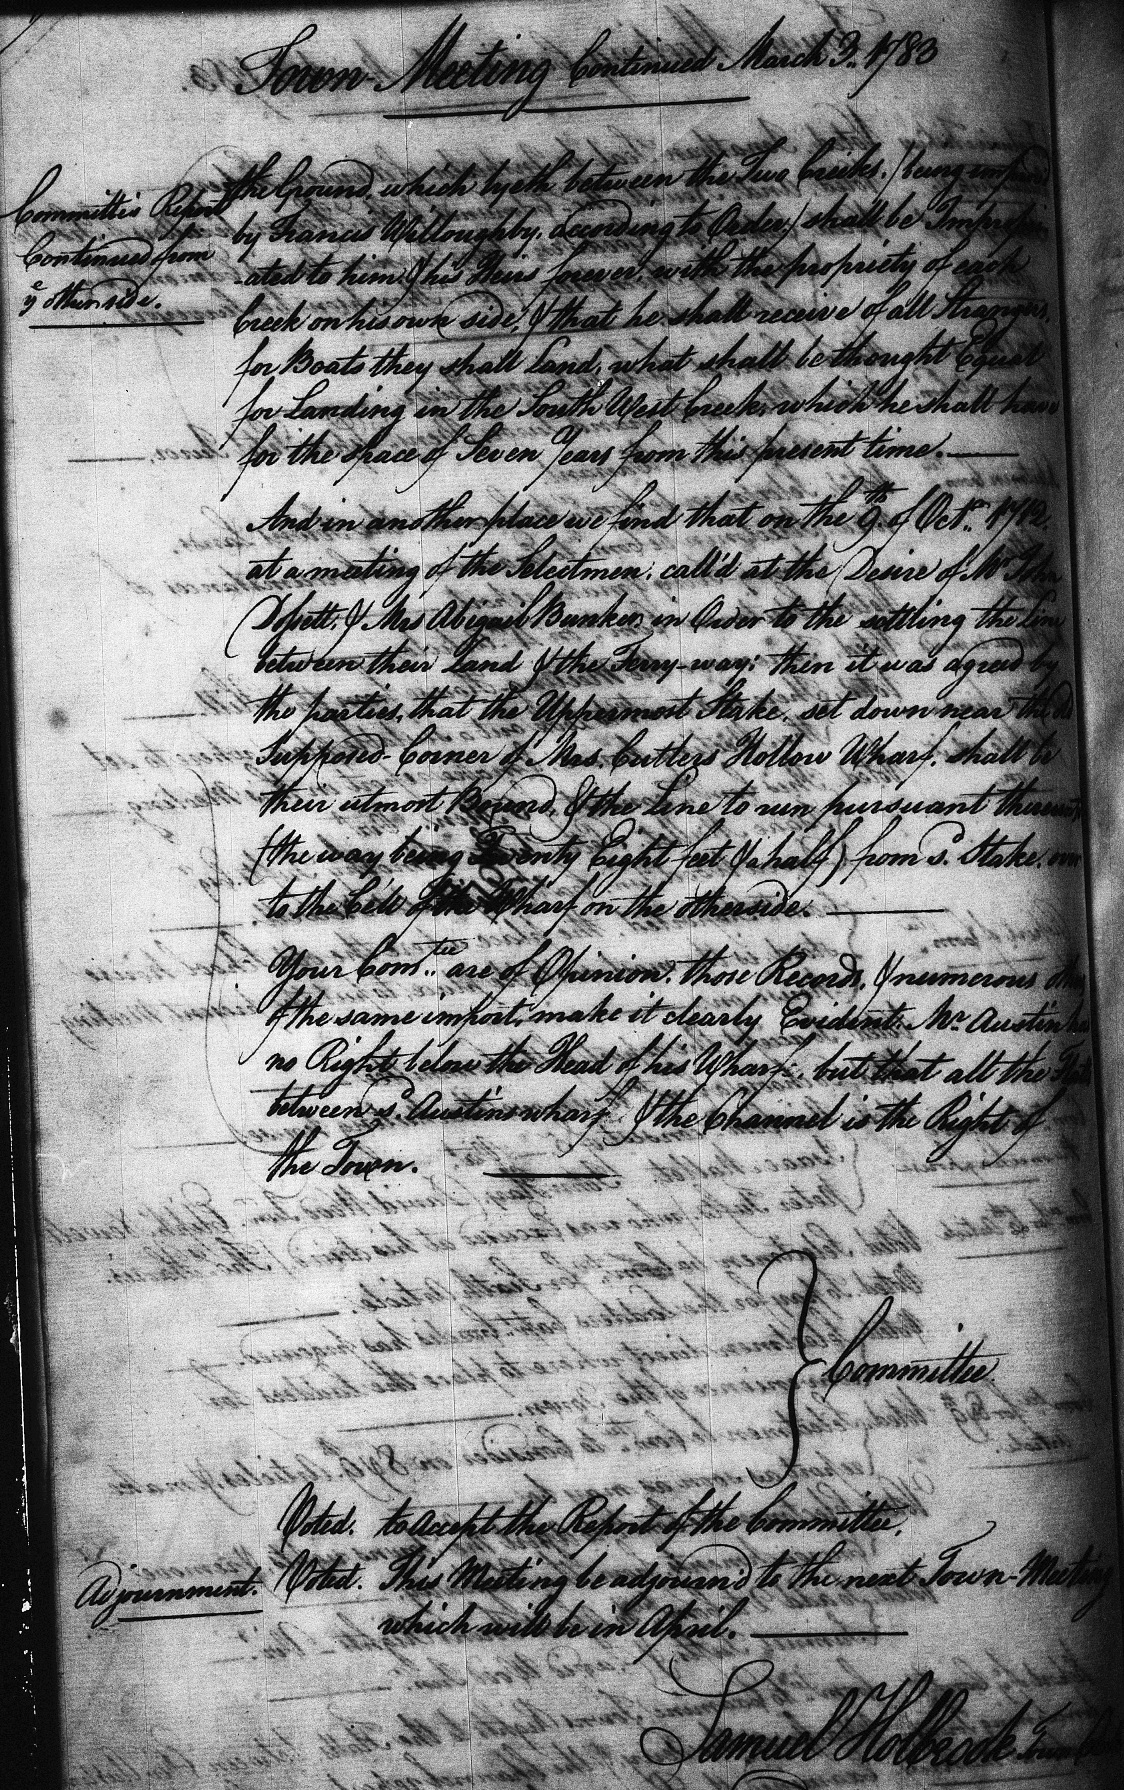 Town-Meeting Continued March 3. 1783
Committis Report
Continued from
ye other side.
the Ground, which lyeth between the Two Creeks. (being
by Francis Willoughby, according to Order) shall be Impropri
-ated to him & his Heirs forever with the propriety of each
Creek on his own side, & that he shall receive of all Strangers,
for Boats they shall Land, what shall be thought Equal
for Landing in the South West Creek, which he shall have
for the space of Seven Years from this present time.
And in another place we find that on the 9th of Octr. 1712
at a meeting of the Selectmen, call'd at the Desire of Mr John
& Mrs Abigail Bunker, in Order to the settling the Line
between their Land & the Ferry-way; then it was agreed by
the parties, that the Uppermost Stake, set down near the
Supposed Corner of Mrs. Cutlers Hollow Wharf, shall be
their utmost Bound, & the Line to run pursuant
(the way being Twenty Eight feet & half) from sd. Stake. over
to the Cell of the Wharf on the otherside.
Your Comtee are of Opinion, those Records, & numerous
of the same import, make it clearly Evident, Mr Austin has
no Right below the Head of his Wharf, but that all the Flats
between sd. Austins wharf & the Channel is the Right of
the Town.
} Committee
Voted. to accept the Report of the Committee.
Adjournment.
Voted. This Meeting be adjournd to the next Town-Meeting
which will be in April.
Samuel Holbrook Town